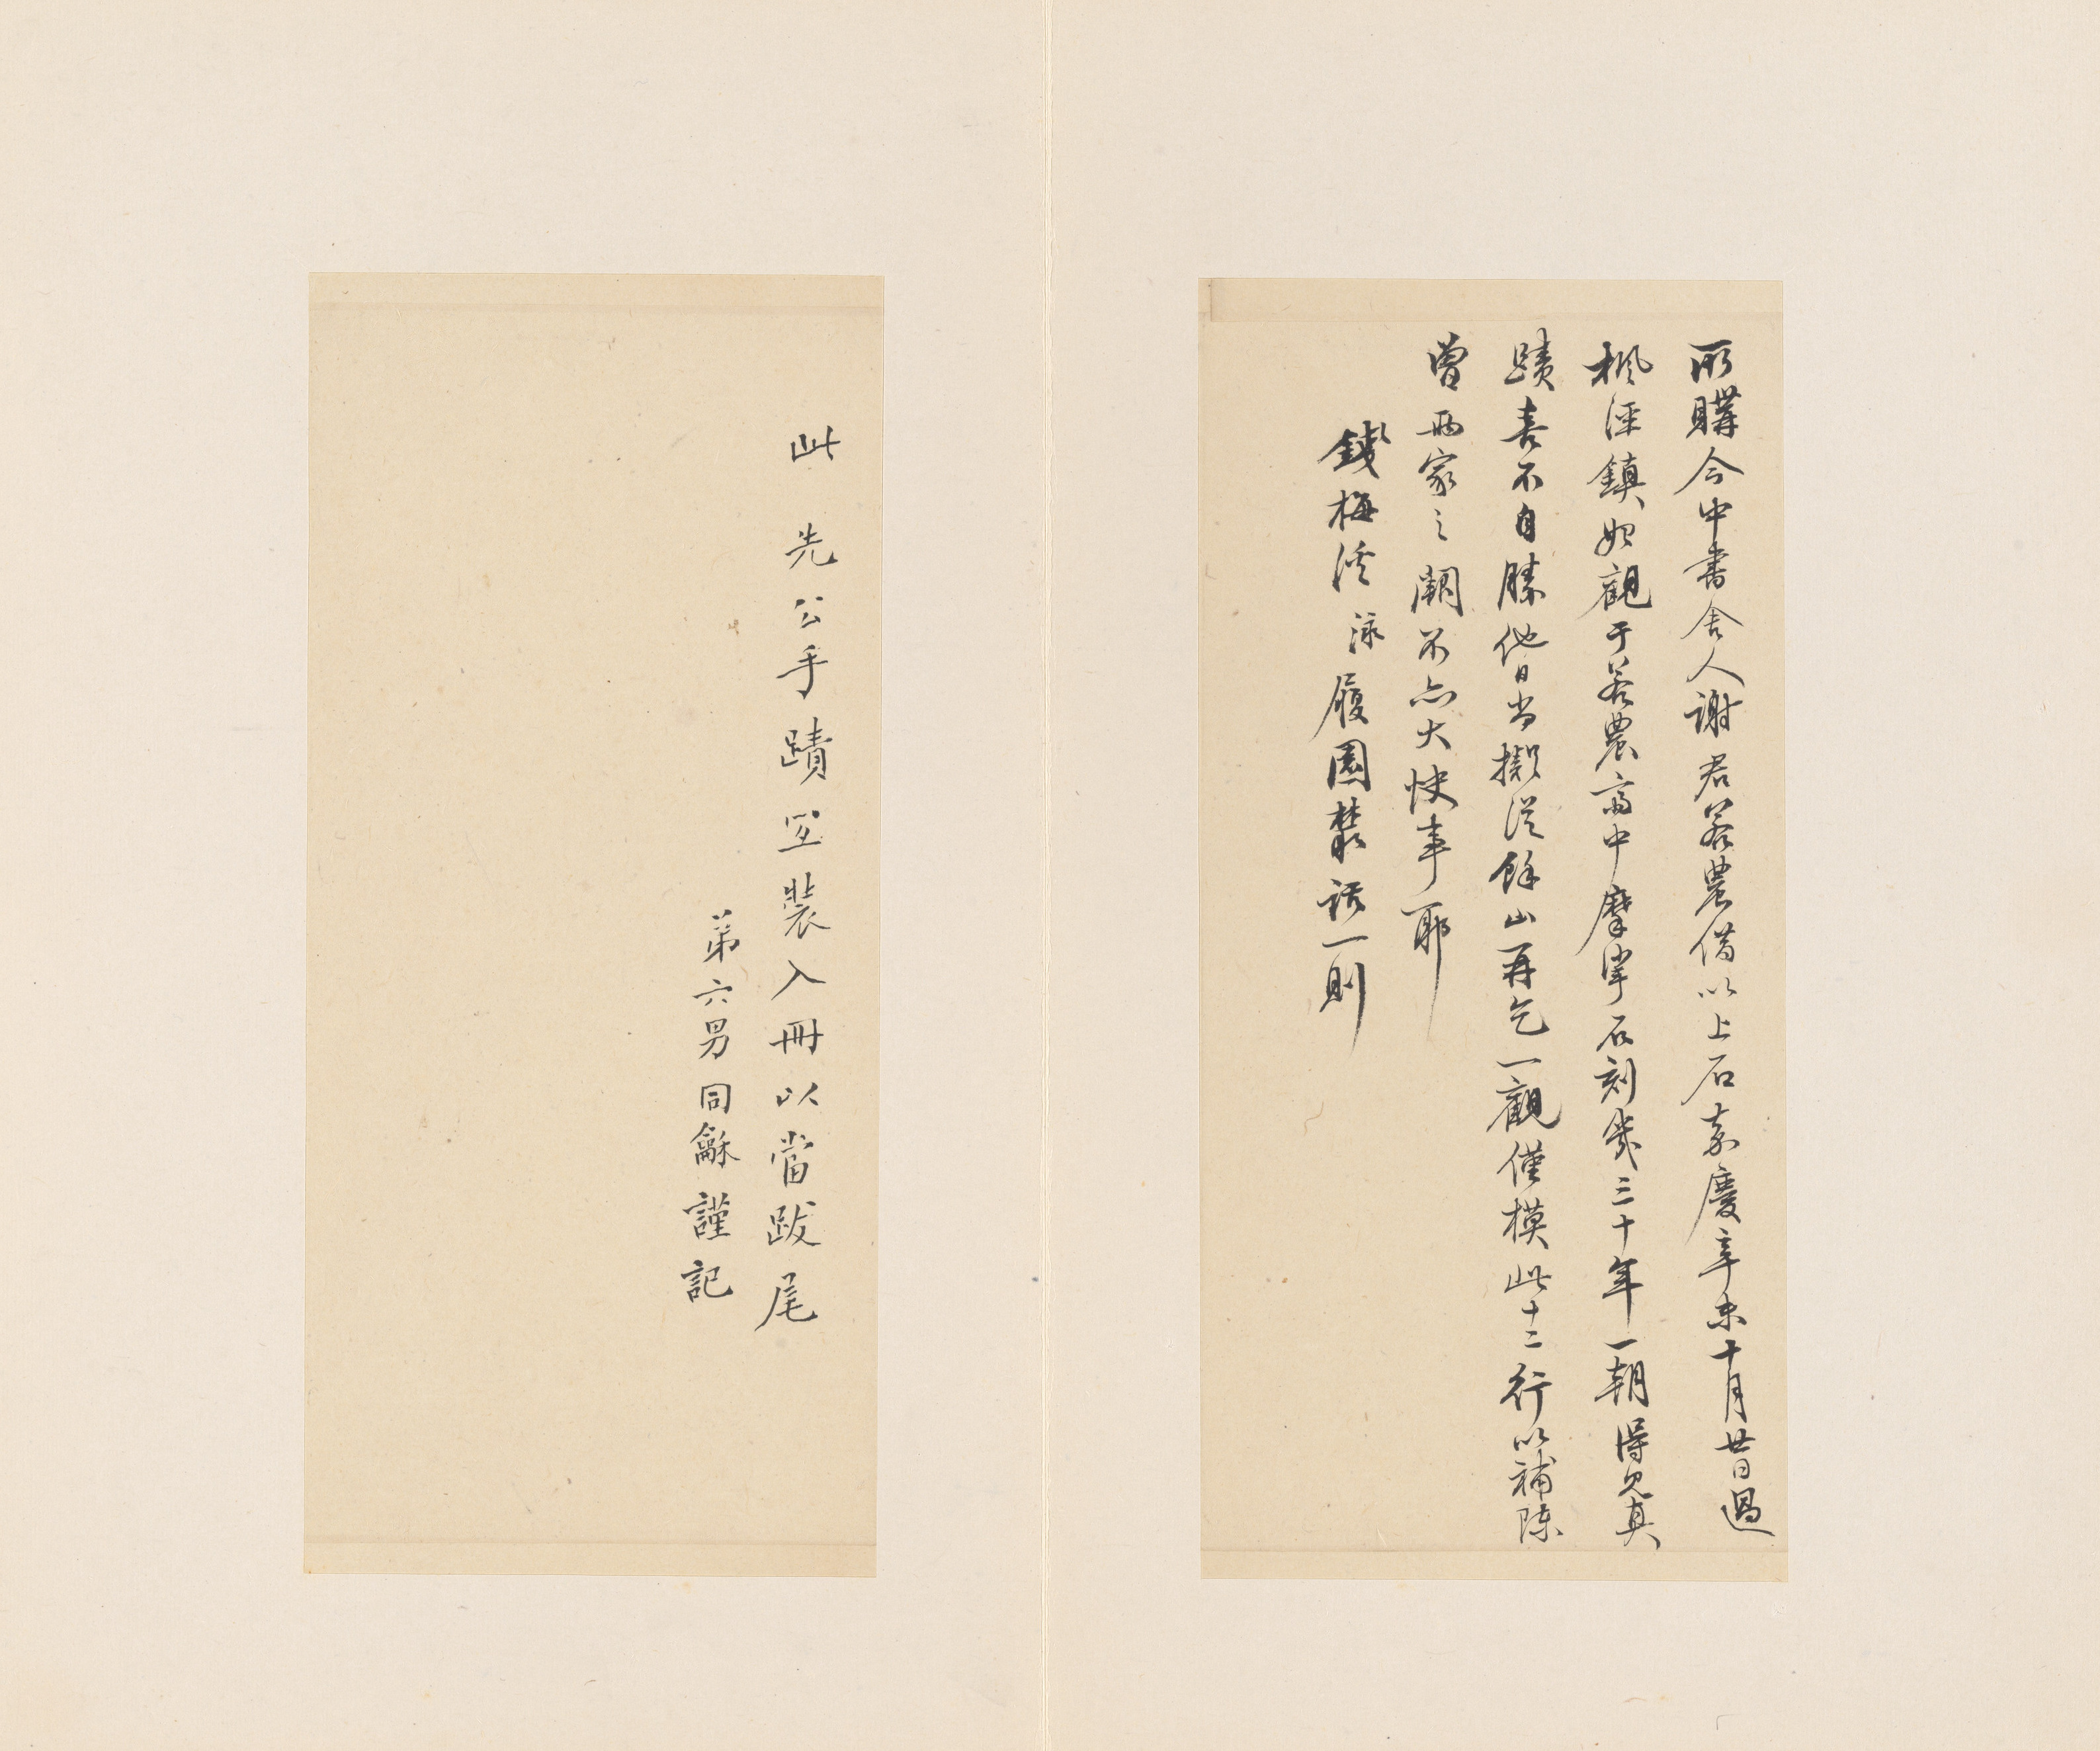 所購今中書舍人謝君若農借以上石嘉慶辛未十月廿日過
楓涇鎮始觀于若農齋中摩挲石刻幾三十年一朝得見真
蹟喜不自勝他日當擬從餘山再乞一觀僅模此十二行以補陳
曾兩家之闕不亦大快事耶
錢梅溪泳履園叢話一則
此先公手蹟亟裝入冊以當跋尾
弟六男同龢謹記